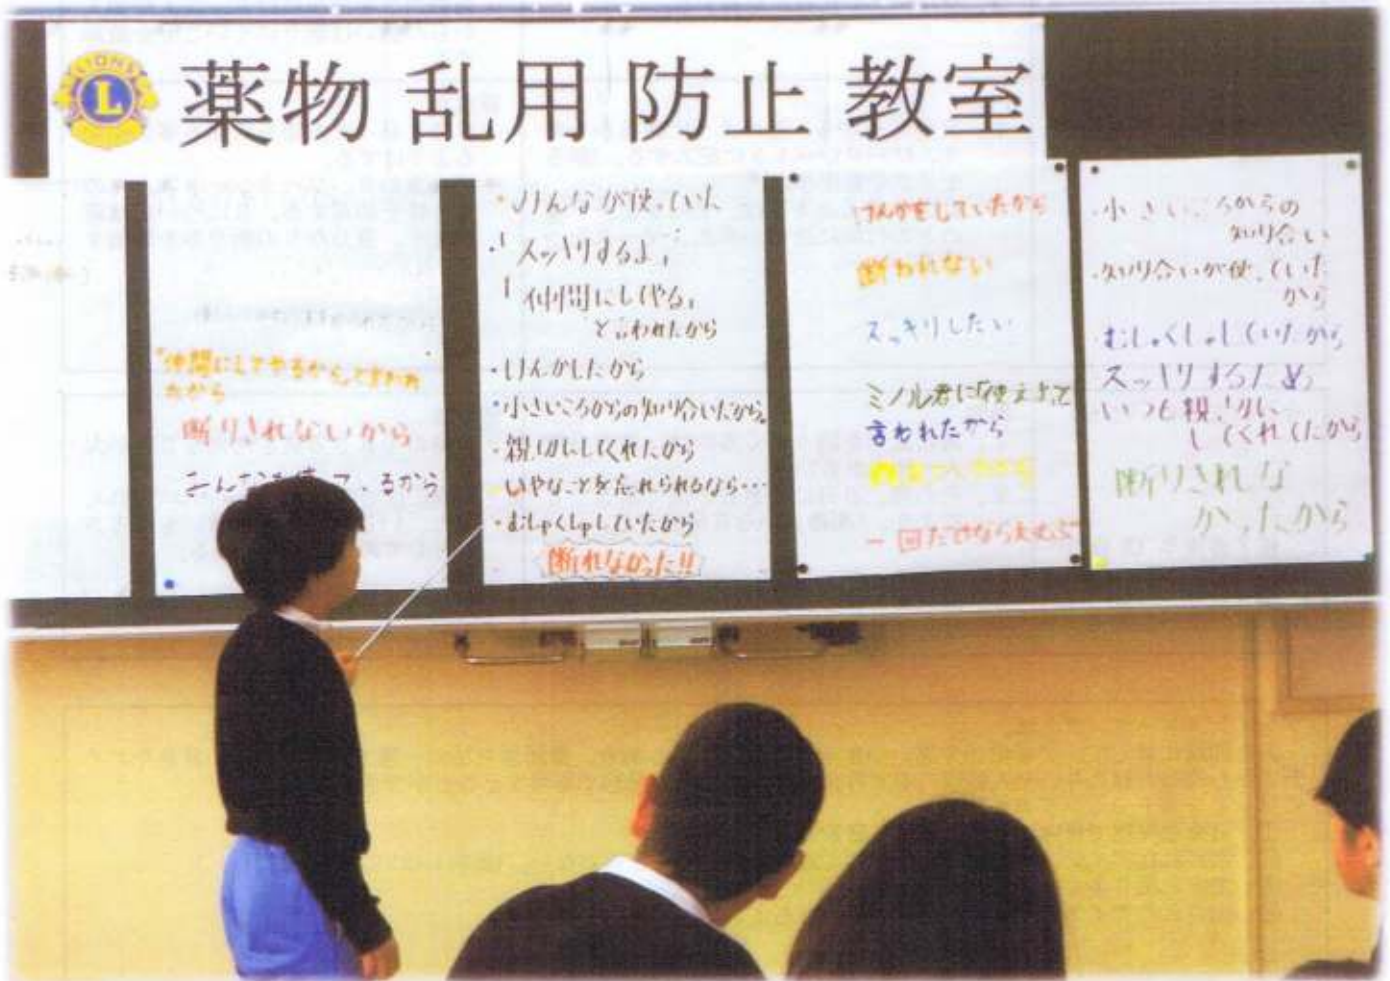 LIONS
L
薬物 乱用 防止 教室
「仲間にしてやるから」と言われ
たから
断りきれないから
・みんなが使っていた
・「スッキリするよ」
「仲間にしてやる」
と言われたから
・けんかしたから
・小さいころからの知り合いだから。
・親切にしてくれたから
・いやなことを忘れられるなら…
・むしゃくしゃしていたから
断れなかった!!
けんかをしていたから
断われない
スッキリしたい
ミノル君に使えよって
言われたから
一回だけなら大丈夫
・小さいころからの
知り合い
・知り合いが使っていた
から
・むしゃくしゃしていたから
スッキリするため
いつも親切に
してくれてたから
断りきれな
かったから